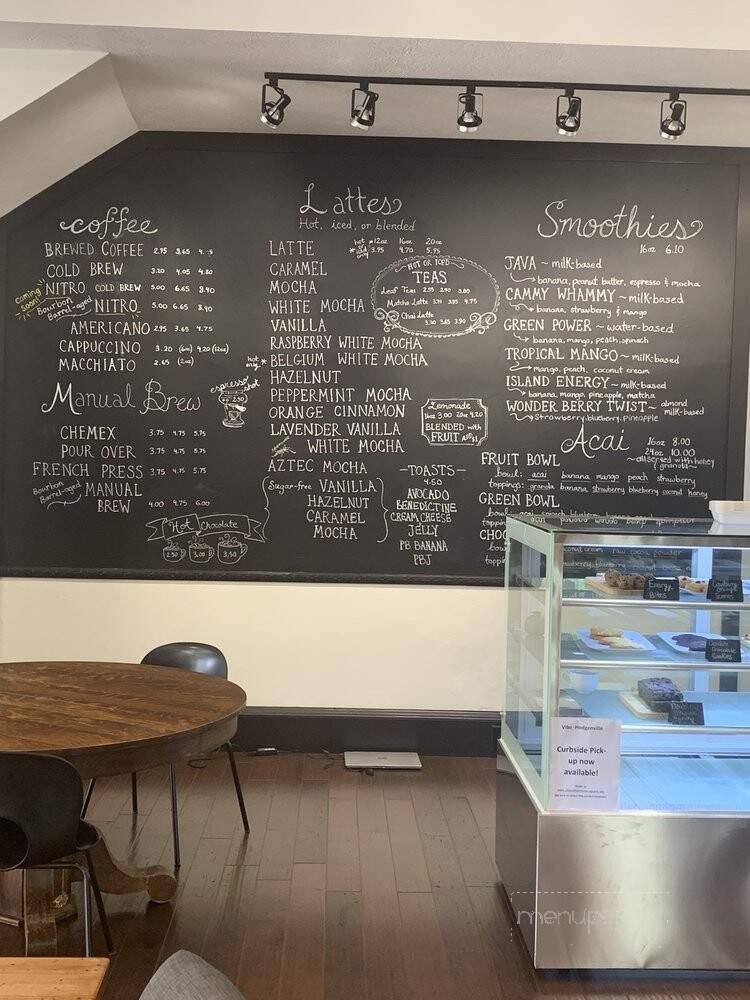 coffee
BREWED COFFEE 2.95 3.65
COLD BREW 3.20 4.05 4.80
coming soon!
NITRO COLD BREW 5.00 6.65 8.40
Bourbon Barrel-aged NITRO 5.00 6.65 8.40
AMERICANO 2.95 3.65 4.75
CAPPUCCINO 3.20 (6oz) 4.20 (12oz)
MACCHIATO 2.65 (2oz)
espresso shot
2.50
Manual Brew
CHEMEX 3.75 4.75 5.75
POUR OVER 3.75 4.75 5.75
FRENCH PRESS 3.75 4.75 5.75
Bourbon Barrel-aged MANUAL
BREW 4.00 4.75 6.00
Hot Chocolate
2.50 3.00 3.50
Lattes
Hot, iced, or blended
hot only 12oz 16oz 20oz
LATTE 3.95 4.70 5.95
CARAMEL
MOCHA
WHITE MOCHA
VANILLA
RASPBERRY WHITE MOCHA
hot only * BELGIUM WHITE MOCHA
HAZELNUT
PEPPERMINT MOCHA
ORANGE CINNAMON
LAVENDER VANILLA
WHITE MOCHA
AZTEC MOCHA
Sugar-free VANILLA
HAZELNUT
CARAMEL
MOCHA
HOT OR ICED
TEAS
Leaf Teas
Matcha Latte
Chai Latte 3.30 3.65 3.90
Lemonade
16oz 3.00 20oz 4.20
BLENDED WITH
FRUIT
TOASTS
4.50
AVOCADO
BENEDICTINE
CREAM CHEESE
JELLY
PB BANANA
PBJ
Smoothies
16oz 6.10
JAVA ~ milk-based
banana, peanut butter, espresso & mocha
CAMMY WHAMMY ~ milk-based
banana, strawberry & mango
GREEN POWER ~ water-based
banana, mango, peach, spinach
TROPICAL MANGO ~ milk-based
mango, peach, coconut cream
ISLAND ENERGY ~ milk-based
banana, mango, pineapple, matcha
WONDER BERRY TWIST ~ almond milk-based
strawberry, blueberry, pineapple
Acai
16oz 8.00
24oz 10.00
~ all served with honey & granola ~
FRUIT BOWL
bowl: acai banana mango peach strawberry
toppings: granola banana strawberry blueberry coconut honey
GREEN BOWL
Energy Bites
Double Chocolate Cookies
Vibe-Hodgenville
Curbside Pick-
up now
available!